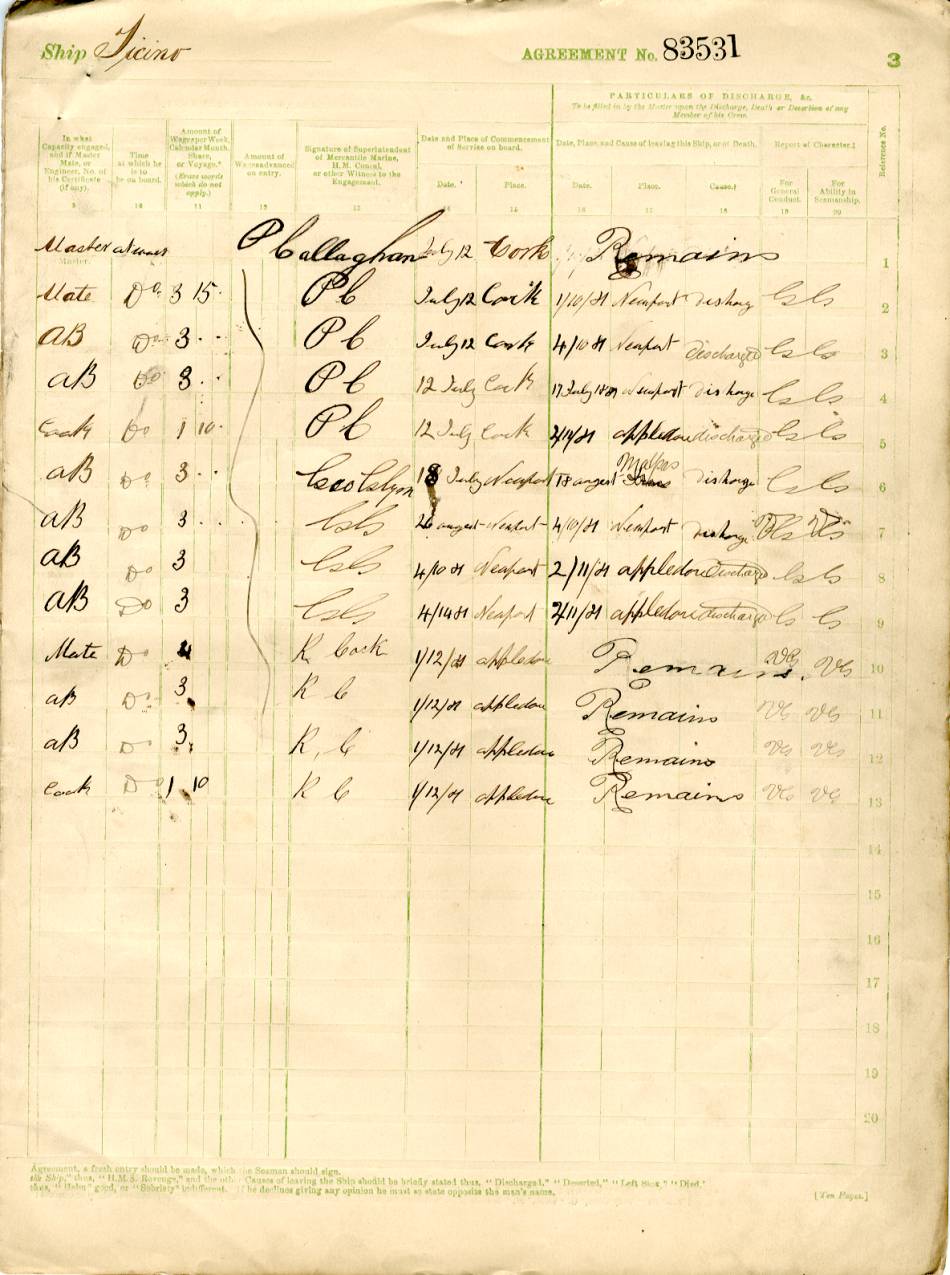 Ship Ticino
AGREEMENT No. 83531
3
PARTICULARS OF DISCHARGE, &c.
To be filled in by the Master upon the Discharge, Death or Desertion of any Member of his Crew.
In what Capacity engaged, and if Master Mate, or Engineer, No. of his Certificate (if any).
Time at which he is to be on board.
Amount of Wages per Week, Calendar Month, Share, or Voyage.* (Erase words which do not apply.)
Amount of Wages advanced on entry.
Signature of Superintendent of Mercantile Marine, H.M. Consul, or other Witness to the Engagement.
Date and Place of Commencement of Service on board.
Date, Place, and Cause of leaving this Ship, or of Death.
Report of Character.‡
Reference No.
Date. Place. Date. Place. Cause.† For General Conduct. For Ability in Seamanship.
9 10 11 12 13 14 15 16 17 18 19 20
Master at once P Callaghan July 12 Cork Remains 1
Master.
Mate Do 3 15 P C July 12 Cork 1/10/81 Newport Discharge 2
AB Do 3 P C July 12 Cork 4/10 81 Newport discharged 3
AB Do 3 P C 12 July Cork 17 July Newport Discharge 4
Cook Do 1 10 P C 12 July Cork appledore discharged 5
AB Do 3 18 July Newport 18 august Malpas Discharge 6
AB Do 3 august Newport 4/10/81 Newport Discharge 7
AB Do 3 4/10 81 Newport 2/11/81 appledore discharged 8
AB Do 3 Newport 2/11/81 appledore discharged 9
Mate Do 4 R Cock 1/12/81 appledore Remains. VG VG 10
AB Do 3 R C 1/12/81 appledore Remains VG VG 11
AB Do 3 R, C 1/12/81 appledore Remains VG VG 12
Cook Do 1 10 R C 1/12/81 appledore Remains VG VG 13
14
15
16
17
18
19
20
Agreement, a fresh entry should be made, which the Seaman should sign.
the Ship," thus, "H.M.S. Revenge," and the other Causes of leaving the Ship should be briefly stated thus, "Discharged," "Deserted," "Left Sick," "Died."
thus, good, or "Sobriety" indifferent. If he declines giving any opinion he must so state opposite the man's name.
[Ten Pages.]